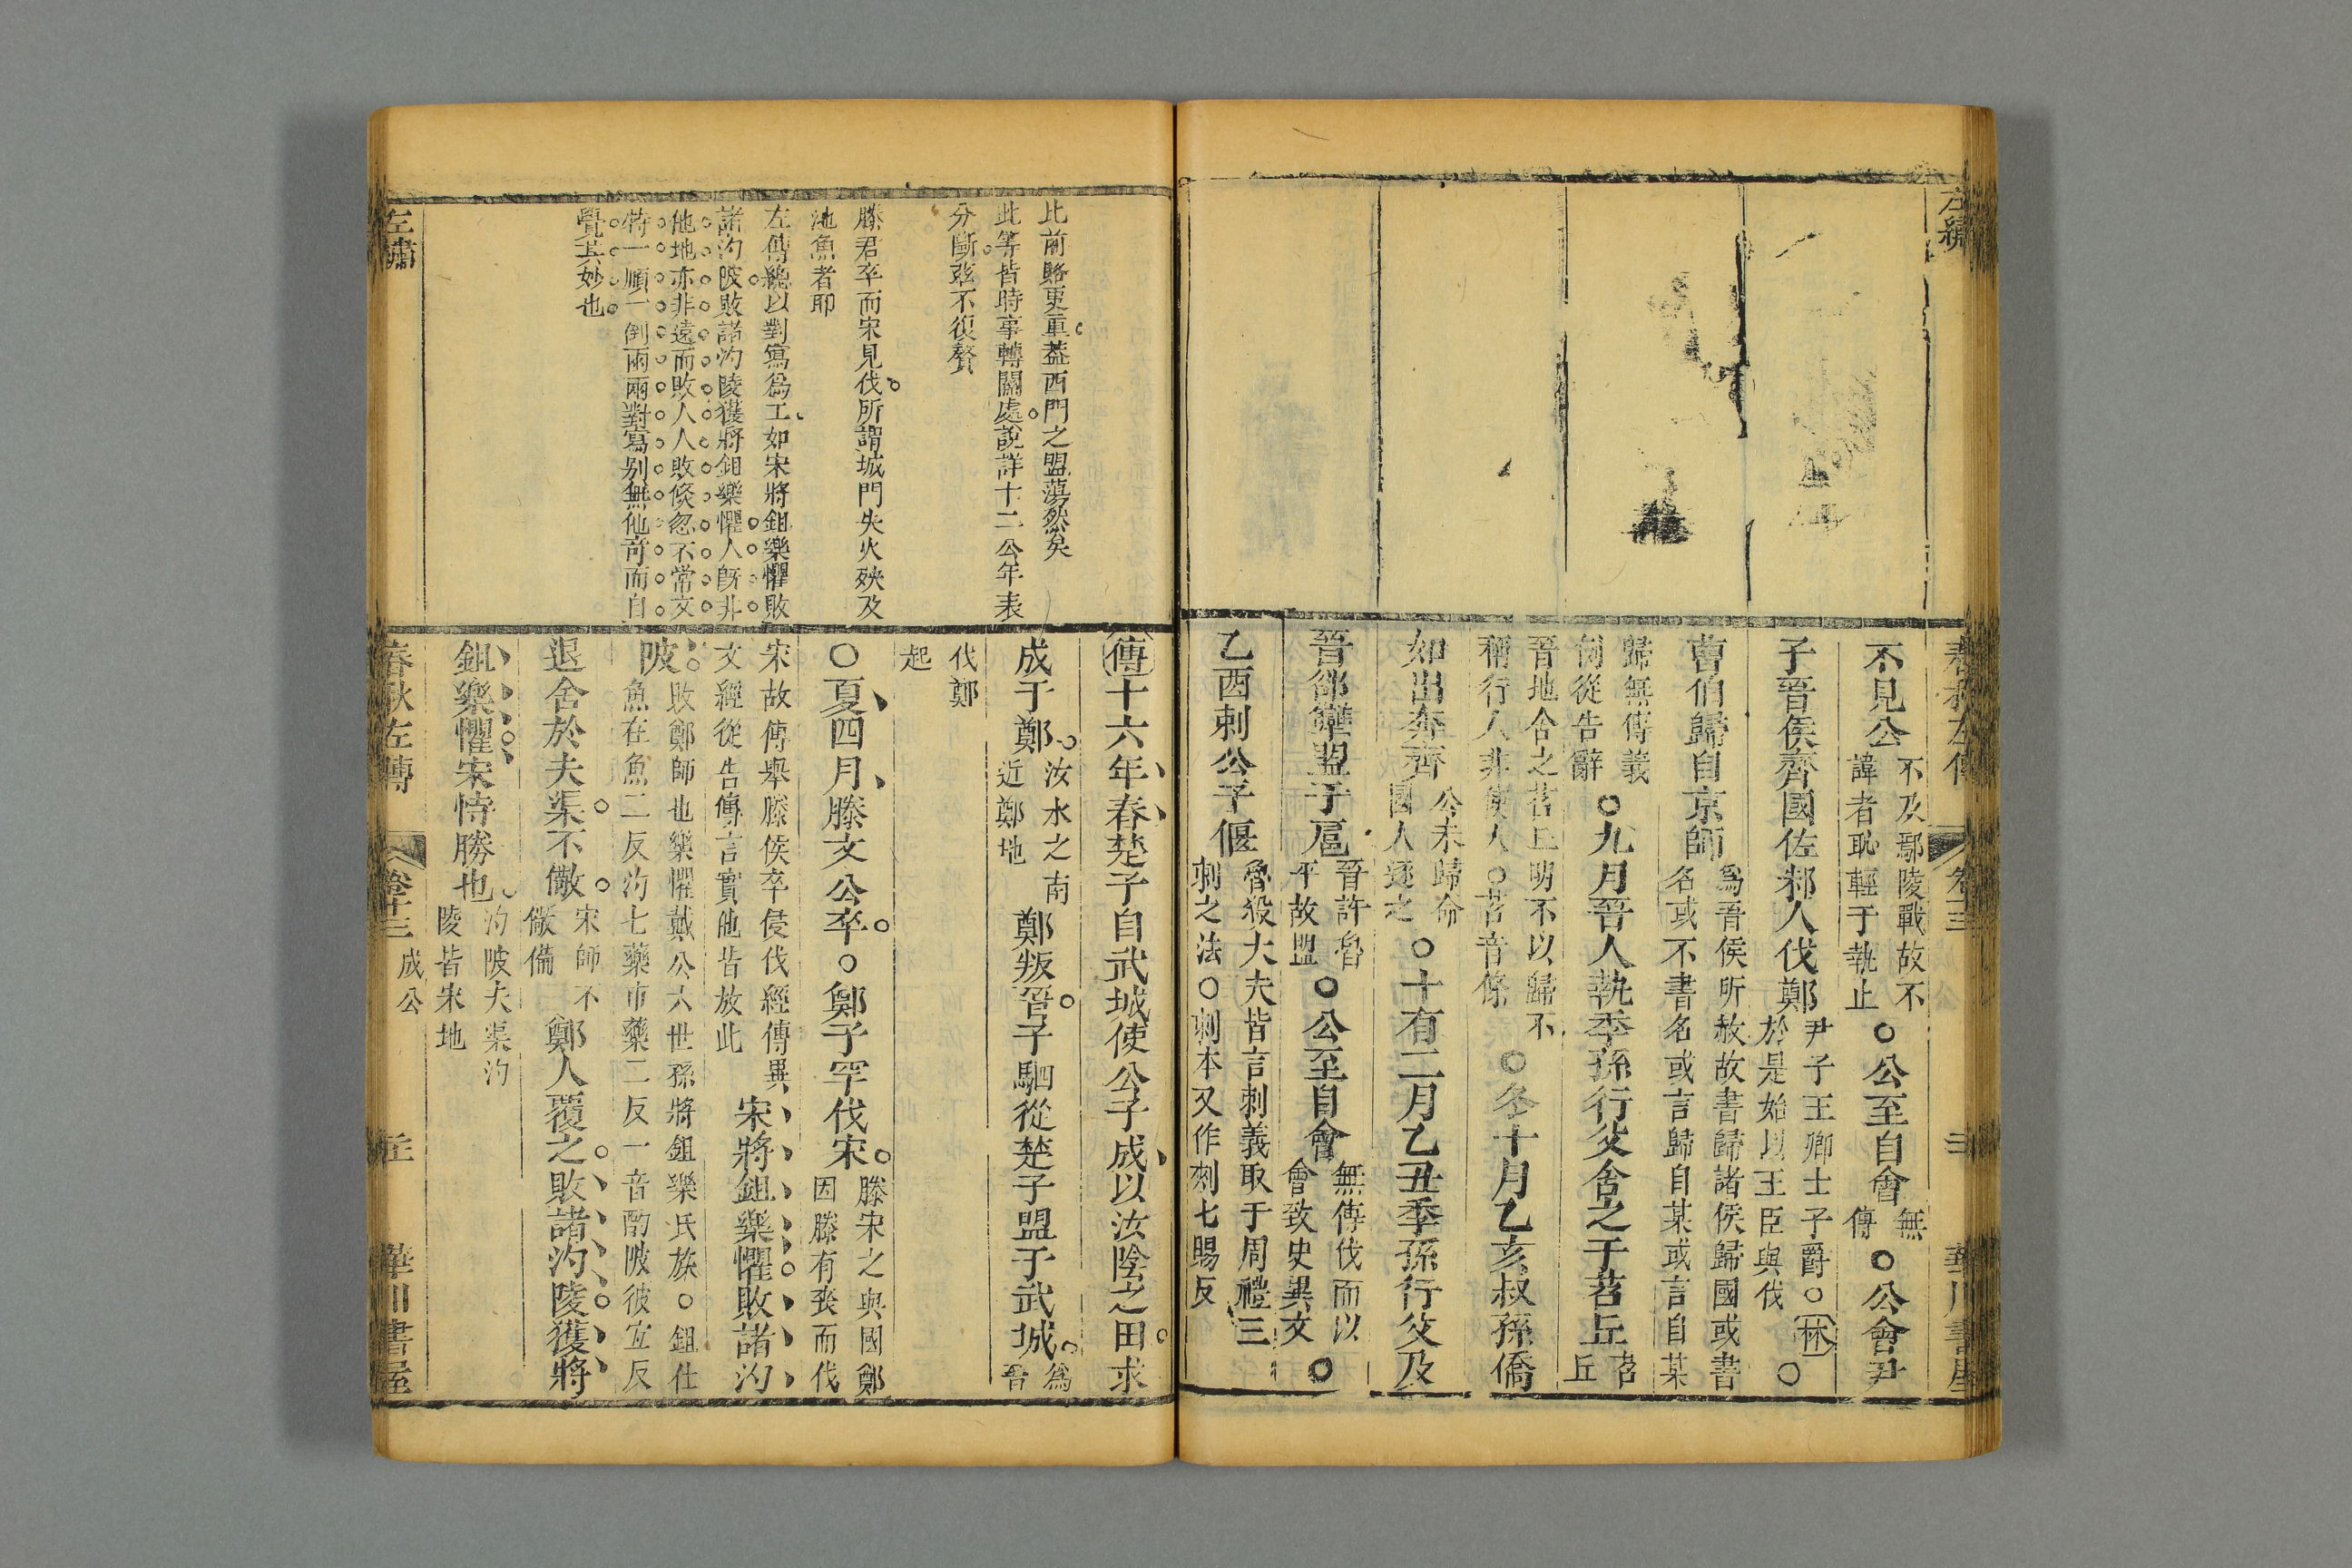 不見公不及鄢陵戰故不諱者恥輕于執止○公至自會無傳○公會尹
子晉侯齊國佐邾人伐鄭尹子王卿士子爵○林於是始以王臣與伐○
曹伯歸自京師為晉侯所赦故書歸諸侯歸國或書名或不書名或言歸自某或言自某
歸無傳義例從告辭○九月晉人執季孫行父舍之于苕丘苕丘
晉地舍之苕丘明不以歸不稱行人非使人○苕音條○冬十月乙亥叔孫僑
如出奔齊公未歸命國人逐之○十有二月乙丑季孫行父及
晉郤犫盟于扈晉許魯平故盟○公至自會無傳伐而以會致史異文○
乙酉刺公子偃魯殺大夫皆言刺義取于周禮三刺之法○刺本又作刾七賜反
比前賂更重葢西門之盟蕩然矣
此等皆時事轉關處說詳十二公年表
分斷玆不復贅
滕君卒而宋見伐所謂城門失火殃及
池魚者耶
左傳總以對寫為工如宋將鉏樂懼敗
諸汋陂敗諸汋陵獲將鉏樂懼人旣非
他地亦非遠而敗人人敗倐忽不常文
特一順一倒兩兩對寫别無他竒而自
覺其妙也
傳十六年春楚子自武城使公子成以汝陰之田求
成于鄭汝水之南近鄭地鄭叛晉子駟從楚子盟于武城為晉
伐鄭起
○夏四月滕文公卒○鄭子罕伐宋滕宋之與國鄭因滕有喪而伐
宋故傳舉滕侯卒侵伐經傳異文經從告傳言實他皆放此宋將鉏樂懼敗諸汋
陂敗鄭師也樂懼戴公六世孫將鉏樂氏族○鉏仕魚在魚二反汋七藥市藥二反一音酌陂彼宜反
退舍於夫渠不儆宋師不儆備鄭人覆之敗諸汋陵獲將
鉏樂懼宋恃勝也汋陂夫渠汋陵皆宋地
左繡
春秋左傳
卷十三 成公
華川書屋